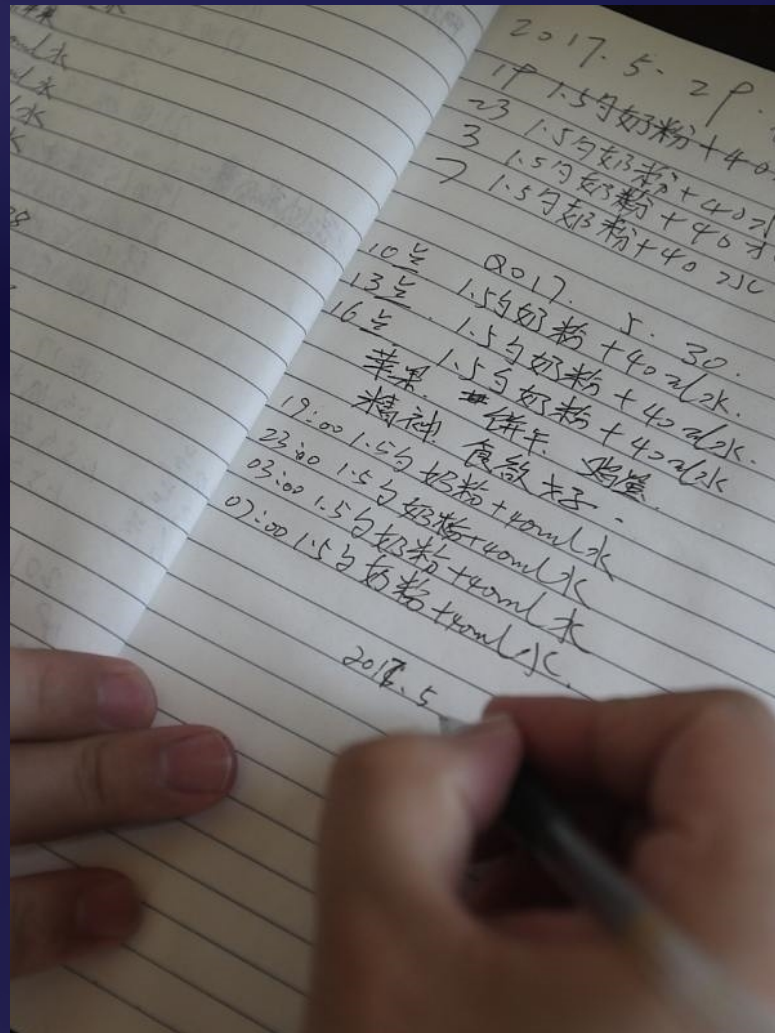 ml水
ml水
水
2017.5.29.
19 1.5勺奶粉+40
23 1.5勺奶粉+40水
3 1.5勺奶粉+40水
7 1.5勺奶粉+40水
2017. 5. 30.
10点 1.5勺奶粉+40ml水.
13点. 1.5勺奶粉+40ml水.
16点. 1.5勺奶粉+40ml水
苹果. 饼干.
精神. 食欲
19:00 1.5勺奶粉+40ml水
23:00 1.5勺奶粉+40ml水
03:00 1.5勺奶粉+40ml水
07:00 1.5勺奶粉+40ml水.
5